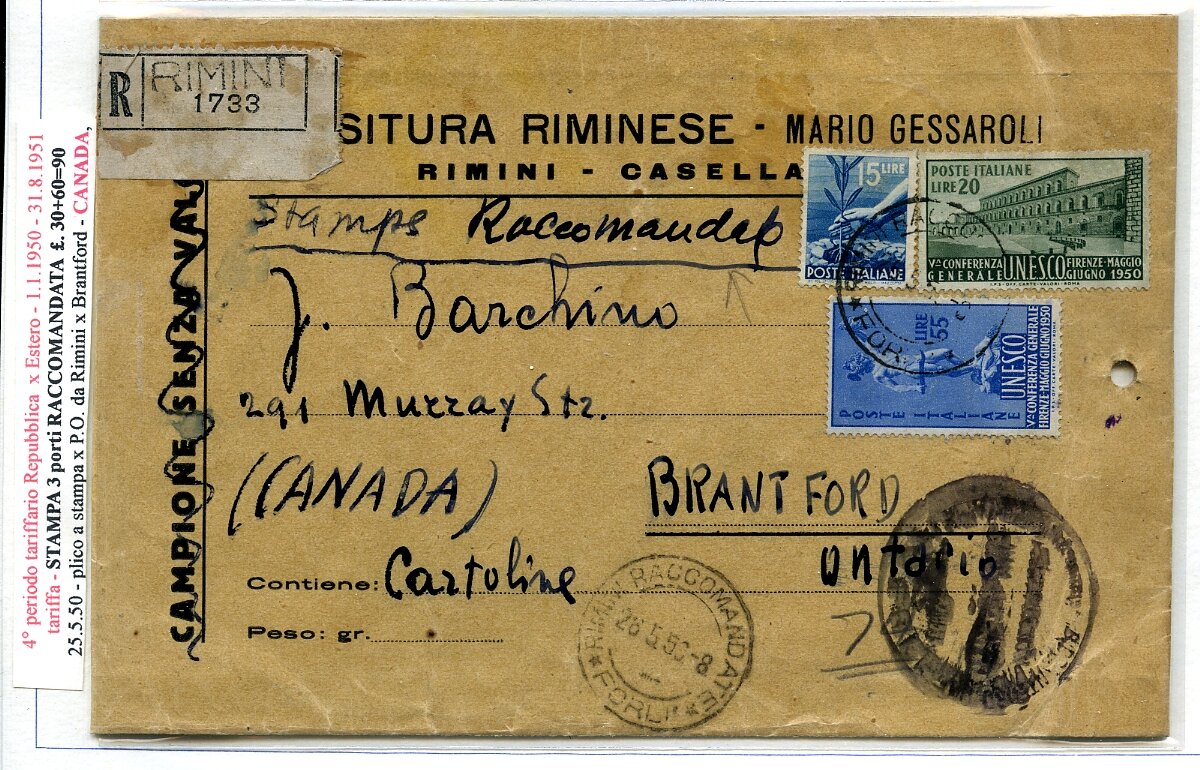 4° periodo tariffario Repubblica x Estero - 1.1.1950 - 31.8.1951
tariffa - STAMPA 3 porti RACCOMANDATA £. 30+60=90
25.5.50 - plico a stampa x P.O. da Rimini x Brantford - CANADA,
R RIMINI
1733
SITURA RIMINESE - MARIO GESSAROLI
RIMINI - CASELLA
CAMPIONE SENZA VAL
Stamps Raccomandep
J. Barchino
291 Murray Str.
(CANADA) BRANTFORD
Ontario
Contiene: Cartoline
Peso: gr.
15 LIRE
POSTE ITALIANE
POSTE ITALIANE
LIRE 20
Vª CONFERENZA GENERALE UNESCO FIRENZE-MAGGIO GIUGNO 1950
I.P.S-OFF. CARTE-VALORI-ROMA
POSTE ITALIANE
LIRE 55
UNESCO
Vª CONFERENZA GENERALE
FIRENZE-MAGGIO GIUGNO 1950
RIMINI RACCOMANDATE
26.5.50-8
FORLI